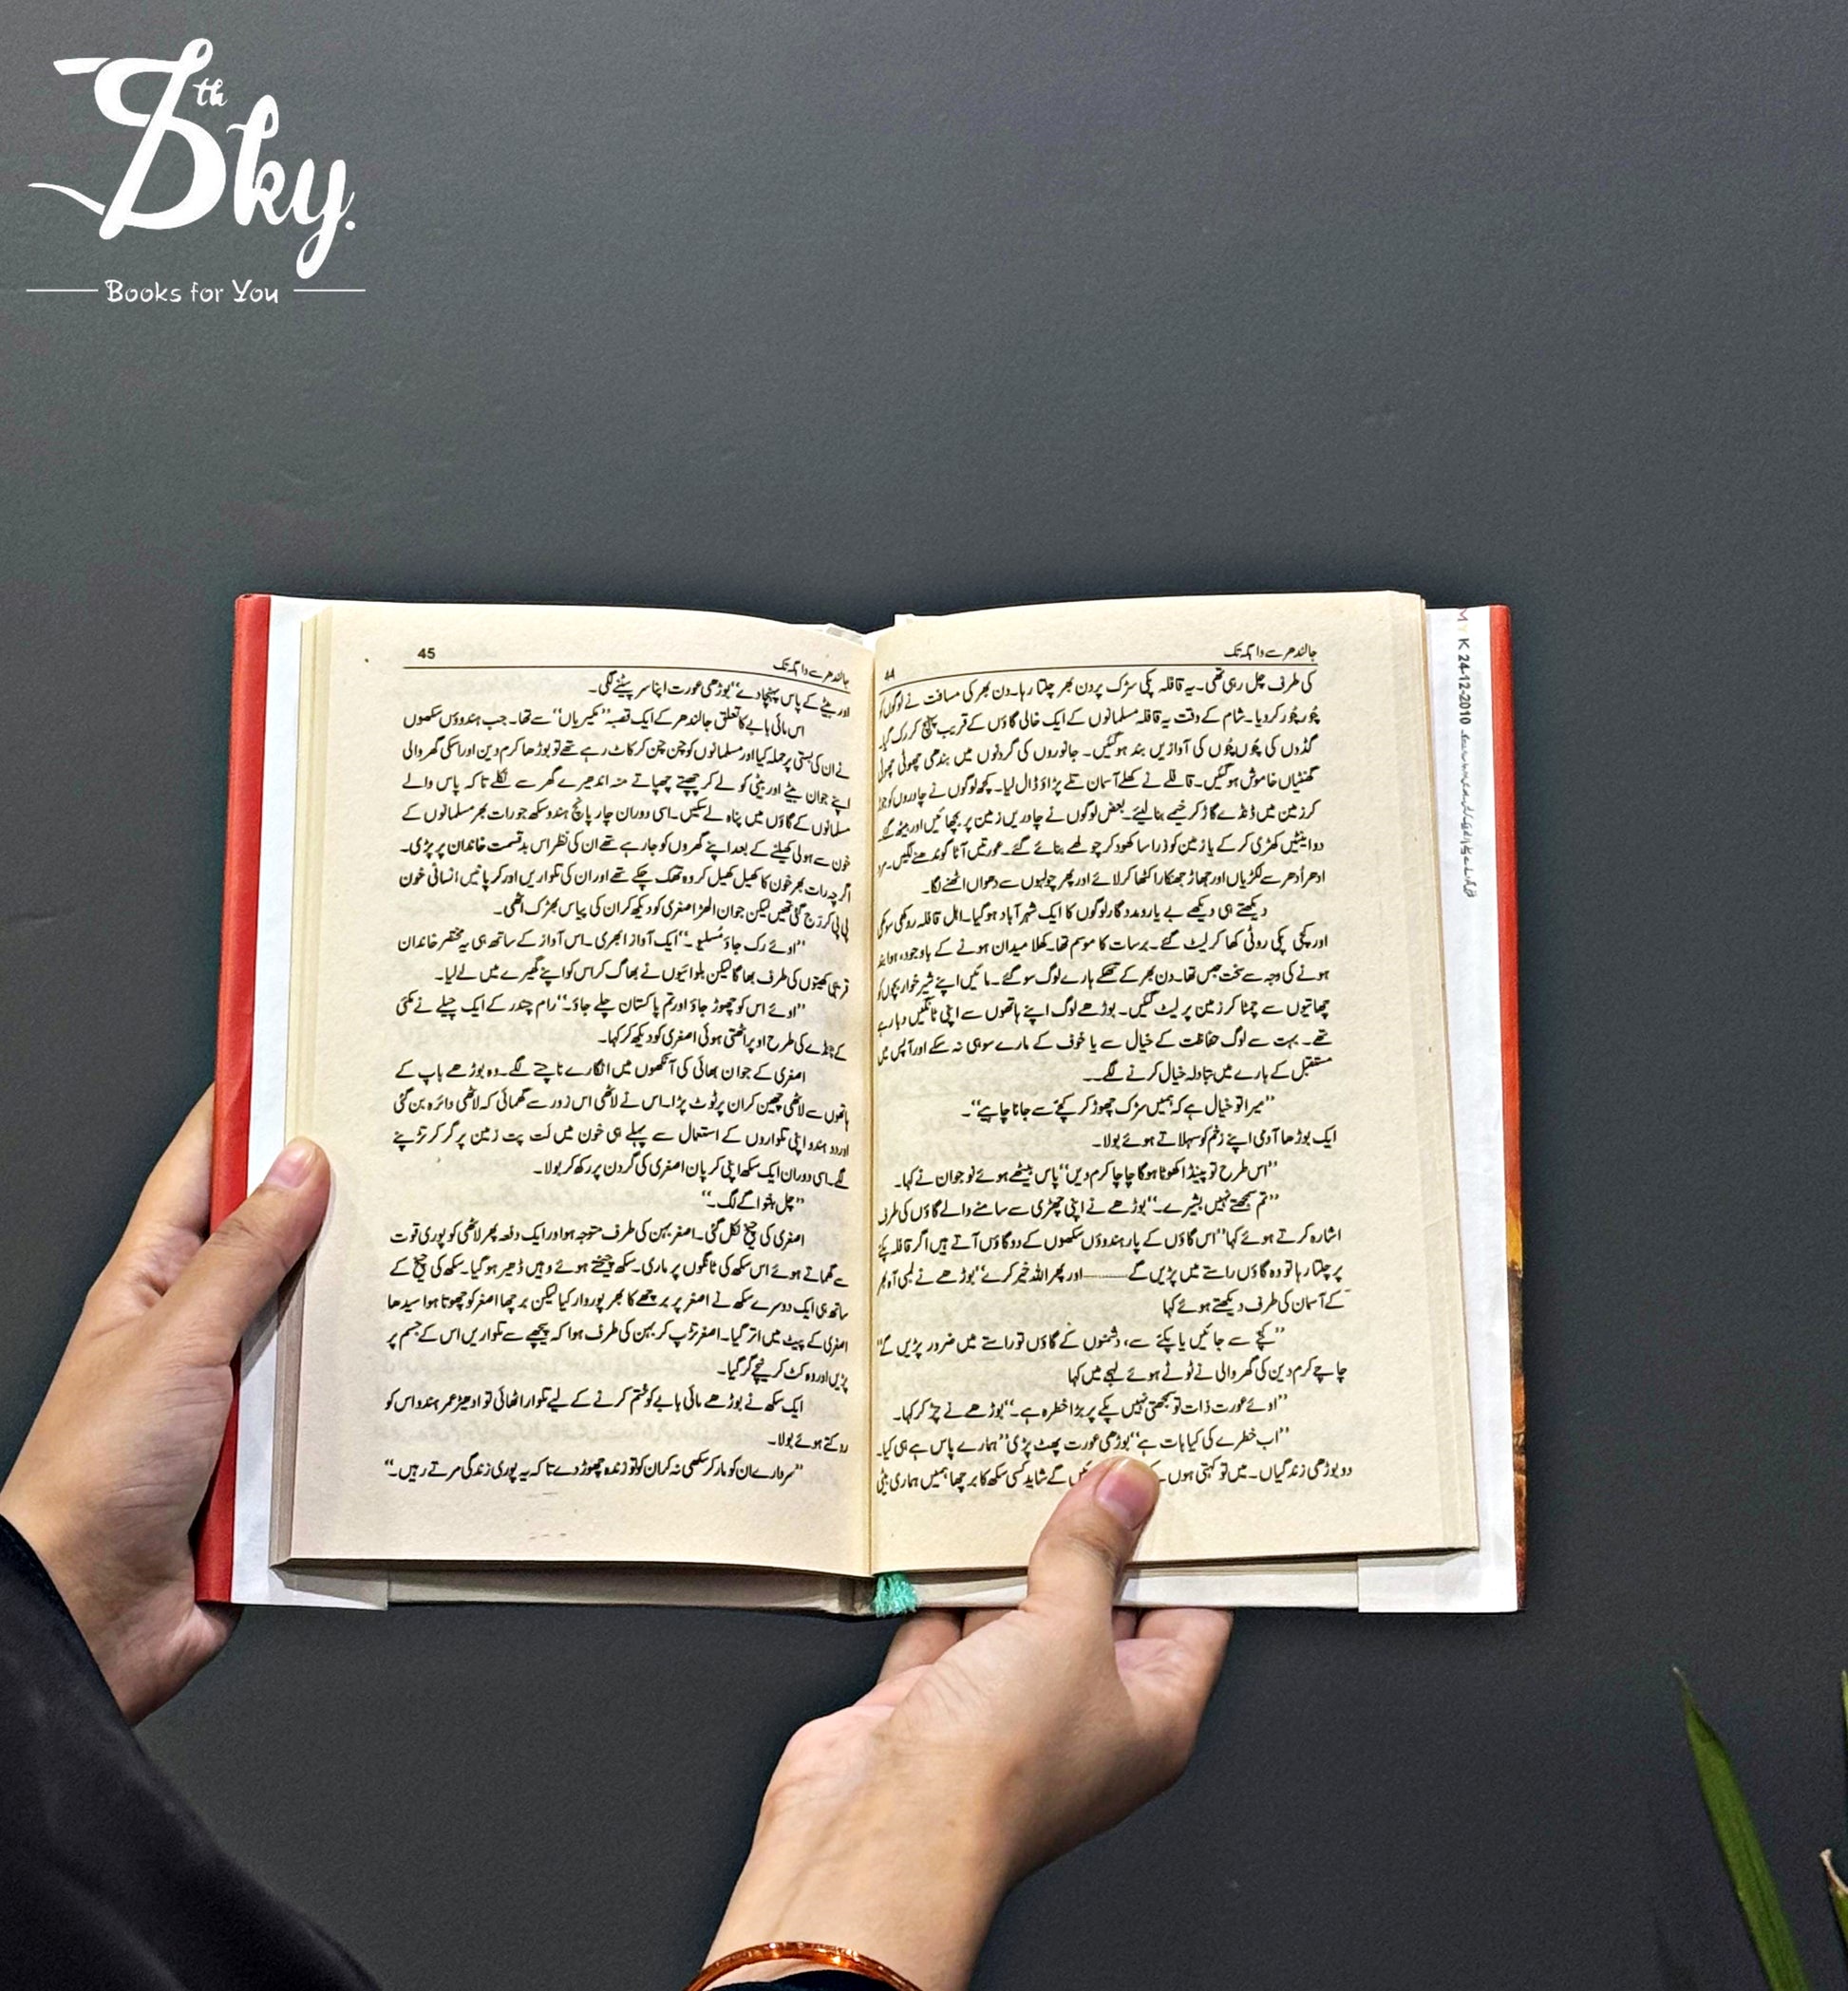 8th Sky.
Books for You
جالندھر سے واہگہ تک
44
کی طرف چل رہی تھی۔ یہ قافلہ پکی سڑک پر دن بھر چلتا رہا۔ دن بھر کی مسافت نے لوگوں کو
چُور چُور کر دیا۔ شام کے وقت یہ قافلہ مسلمانوں کے ایک خالی گاؤں کے قریب پہنچ کر رک گیا۔
گڈوں کی چُوں چُوں کی آوازیں بند ہو گئیں۔ جانوروں کی گردنوں میں بندھی چھوٹی چھوٹی
گھنٹیاں خاموش ہو گئیں۔ قافلے نے کھلے آسمان تلے پڑاؤ ڈال لیا۔ کچھ لوگوں نے چادروں کو جوڑ
کر زمین میں ڈنڈے گاڑ کر خیمے بنا لیئے۔ بعض لوگوں نے چادریں زمین پر بچھائیں اور بیٹھ گئے۔
دو اینٹیں کھڑی کر کے یا زمین کو ذرا سا کھود کر چولھے بنائے گئے۔ عورتیں آٹا گوندھنے لگیں۔ مرد
ادھر اُدھر سے لکڑیاں اور جھاڑ جھنکار اکٹھا کر لائے اور پھر چولہوں سے دھواں اٹھنے لگا۔
دیکھتے ہی دیکھے بے یارومددگار لوگوں کا ایک شہر آباد ہو گیا۔ اہل قافلہ روکھی سوکھی
اور کچی پکی روٹی کھا کر لیٹ گئے۔ برسات کا موسم تھا۔ کھلا میدان ہونے کے باوجود، ہوا بند
ہونے کی وجہ سے سخت حبس تھا۔ دن بھر کے تھکے ہارے لوگ سو گئے۔ مائیں اپنے شیر خوار بچوں کو
چھاتیوں سے چمٹا کر زمین پر لیٹ گئیں۔ بوڑھے لوگ اپنے ہاتھوں سے اپنی ٹانگیں دبا رہے
تھے۔ بہت سے لوگ حفاظت کے خیال سے یا خوف کے مارے سو ہی نہ سکے اور آپس میں
مستقبل کے بارے میں تبادلہ خیال کرنے لگے۔۔
"میرا تو خیال ہے کہ ہمیں سڑک چھوڑ کر کچے سے جانا چاہیے"۔
ایک بوڑھا آدمی اپنے زخم کو سہلاتے ہوئے بولا۔
"اس طرح تو پینڈا کھوٹا ہوگا چاچا کرم دیں" پاس بیٹھے ہوئے نوجوان نے کہا۔
"تم سمجھتے نہیں بشیرے۔" بوڑھے نے اپنی چھڑی سے سامنے والے گاؤں کی طرف
اشارہ کرتے ہوئے کہا "اس گاؤں کے پار ہندوؤں سکھوں کے دو گاؤں آتے ہیں اگر قافلہ پکے
پر چلتا رہا تو وہ گاؤں راستے میں پڑیں گے ......... اور پھر اللہ خیر کرے" بوڑھے نے لمبی آہ بھر
کے آسمان کی طرف دیکھتے ہوئے کہا
"کچے سے جائیں یا پکے سے، دشمنوں کے گاؤں تو راستے میں ضرور پڑیں گے"
چاچے کرم دین کی گھر والی نے ٹوٹے ہوئے لہجے میں کہا
"اوئے عورت ذات تو سمجھتی نہیں پکے پر بڑا خطرہ ہے۔" بوڑھے نے چڑ کر کہا۔
"اب خطرے کی کیا بات ہے" بوڑھی عورت پھٹ پڑی "ہمارے پاس ہے ہی کیا۔
دو بوڑھی زندگیاں۔ میں تو کہتی ہوں گے شاید کسی سکھ کا برچھا ہمیں ہماری بیٹی
45
جالندھر سے واہگہ تک
اور بیٹے کے پاس پہنچا دے" بوڑھی عورت اپنا سر پیٹنے لگی۔
اس مائی بابے کا تعلق جالندھر کے ایک قصبہ "مکیریاں" سے تھا۔ جب ہندوؤں سکھوں
نے ان کی بستی پر حملہ کیا اور مسلمانوں کو چن چن کر کاٹ رہے تھے تو بوڑھا کرم دین اور اسکی گھر والی
اپنے جوان بیٹے اور بیٹی کو لے کر چھپتے چھپاتے منہ اندھیرے گھر سے نکلے تاکہ پاس والے
مسلمانوں کے گاؤں میں پناہ لے سکیں۔ اسی دوران چار پانچ ہندو سکھ جو رات بھر مسلمانوں کے
خون سے ہولی کھیلنے کے بعد اپنے گھروں کو جا رہے تھے ان کی نظر اس بدقسمت خاندان پر پڑی۔
اگرچہ رات بھر خون کا کھیل کھیل کر وہ تھک چکے تھے اور ان کی تلواریں اور کرپانیں انسانی خون
پی پی کر رَج گئی تھیں لیکن جوان الھڑ اصغری کو دیکھ کر ان کی پیاس بھڑک اٹھی۔
"اوئے رک جاؤ مُسلیو۔" ایک آواز ابھری۔ اس آواز کے ساتھ ہی یہ مختصر خاندان
قریبی کھیتوں کی طرف بھاگا لیکن بلوائیوں نے بھاگ کر اس کو اپنے گھیرے میں لے لیا۔
"اوئے اس کو چھوڑ جاؤ اور تم پاکستان چلے جاؤ۔" رام چندر کے ایک چیلے نے مکئی
کے ٹانڈے کی طرح اوپر اٹھتی ہوئی اصغری کو دیکھ کر کہا۔
اصغری کے جوان بھائی کی آنکھوں میں انگارے ناچنے لگے۔ وہ بوڑھے باپ کے
ہاتھوں سے لاٹھی چھین کر ان پر ٹوٹ پڑا۔ اس نے لاٹھی اس زور سے گھمائی کہ لاٹھی دائرہ بن گئی
اور دو ہندو اپنی تلواروں کے استعمال سے پہلے ہی خون میں لت پت زمین پر گر کر تڑپنے
لگے۔ اسی دوران ایک سکھ اپنی کرپان اصغری کی گردن پر رکھ کر بولا۔
"چل بلّو اگے لگ۔"
اصغری کی چیخ نکل گئی۔ اصغر بہن کی طرف متوجہ ہوا اور ایک دفعہ پھر لاٹھی کو پوری قوت
سے گھماتے ہوئے اس سکھ کی ٹانگوں پر ماری۔ سکھ چیختے ہوئے وہیں ڈھیر ہو گیا۔ سکھ کی چیخ کے
ساتھ ہی ایک دوسرے سکھ نے اصغر پر برچھے کا بھر پور وار کیا لیکن برچھا اصغر کو چھوتا ہوا سیدھا
اصغری کے پیٹ میں اتر گیا۔ اصغر تڑپ کر بہن کی طرف ہوا کہ پیچھے سے تلواریں اس کے جسم پر
پڑیں اور وہ کٹ کر نیچے گر گیا۔
ایک سکھ نے بوڑھے مائی بابے کو ختم کرنے کے لیے تلوار اٹھائی تو ادھیڑ عمر ہندو اس کو
روکتے ہوئے بولا۔
"سردارے ان کو مار کر سکھی نہ کر ان کو تو زندہ چھوڑ دے تاکہ یہ پوری زندگی مرتے رہیں۔"
M Y K 24-12-2010